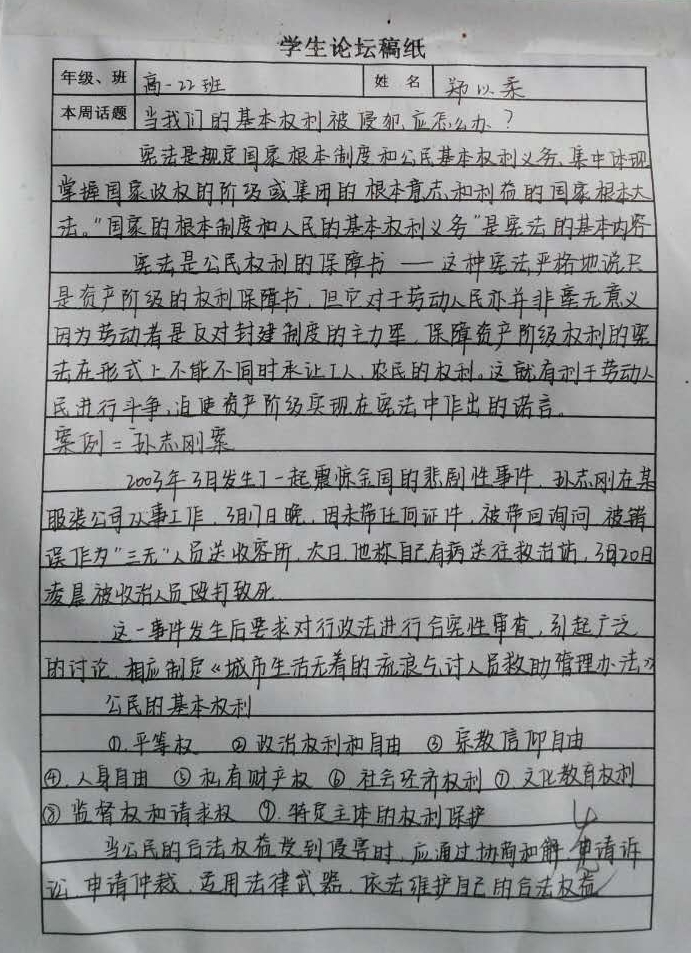 学生论坛稿纸
年级、班 高一22班 姓 名 郑以柔
本周话题 当我们的基本权利被侵犯应怎么办？
宪法是规定国家根本制度和公民基本权利义务、集中体现
掌握国家政权的阶级或集团的根本意志和利益的国家根本大
法。“国家的根本制度和人民的基本权利义务”是宪法的基本内容
宪法是公民权利的保障书——这种宪法严格地说只
是资产阶级的权利保障书，但它对于劳动人民亦并非毫无意义
因为劳动者是反对封建制度的主力军，保障资产阶级权利的宪
法在形式上不能不同时承让工人、农民的权利。这就有利于劳动人
民进行斗争，迫使资产阶级实现在宪法中作出的诺言。
案例：孙志刚案
2003年3月发生了一起震惊全国的悲剧性事件，孙志刚在某
服装公司从事工作，3月17日晚，因未带任何证件，被带回询问，被错
误作为“三无”人员送收容所，次日，他称自己有病送往救治站，3月20日
凌晨被收治人员殴打致死
这一事件发生后要求对行政法进行合宪性审查，引起广泛
的讨论，相应制定《城市生活无着的流浪乞讨人员救助管理办法》
公民的基本权利
①.平等权 ②政治权利和自由 ③宗教信仰自由
④.人身自由 ⑤私有财产权 ⑥社会经济权利 ⑦.文化教育权利
⑧监督权和请求权 ⑨.特定主体的权利保护
当公民的合法权益受到侵害时，应通过协商和解，申请诉
讼，申请仲裁，运用法律武器，依法维护自己的合法权益